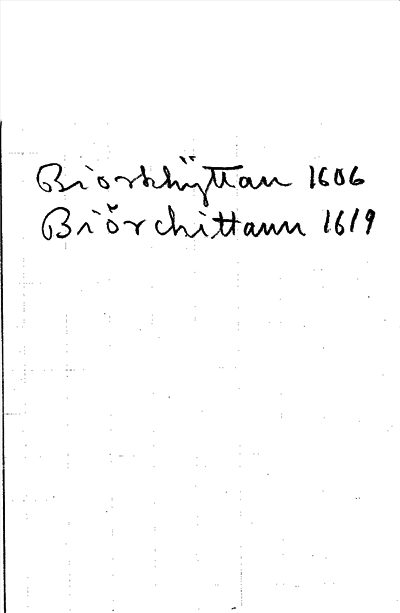 Biorkhÿttan 1606
Biörchittann 1619